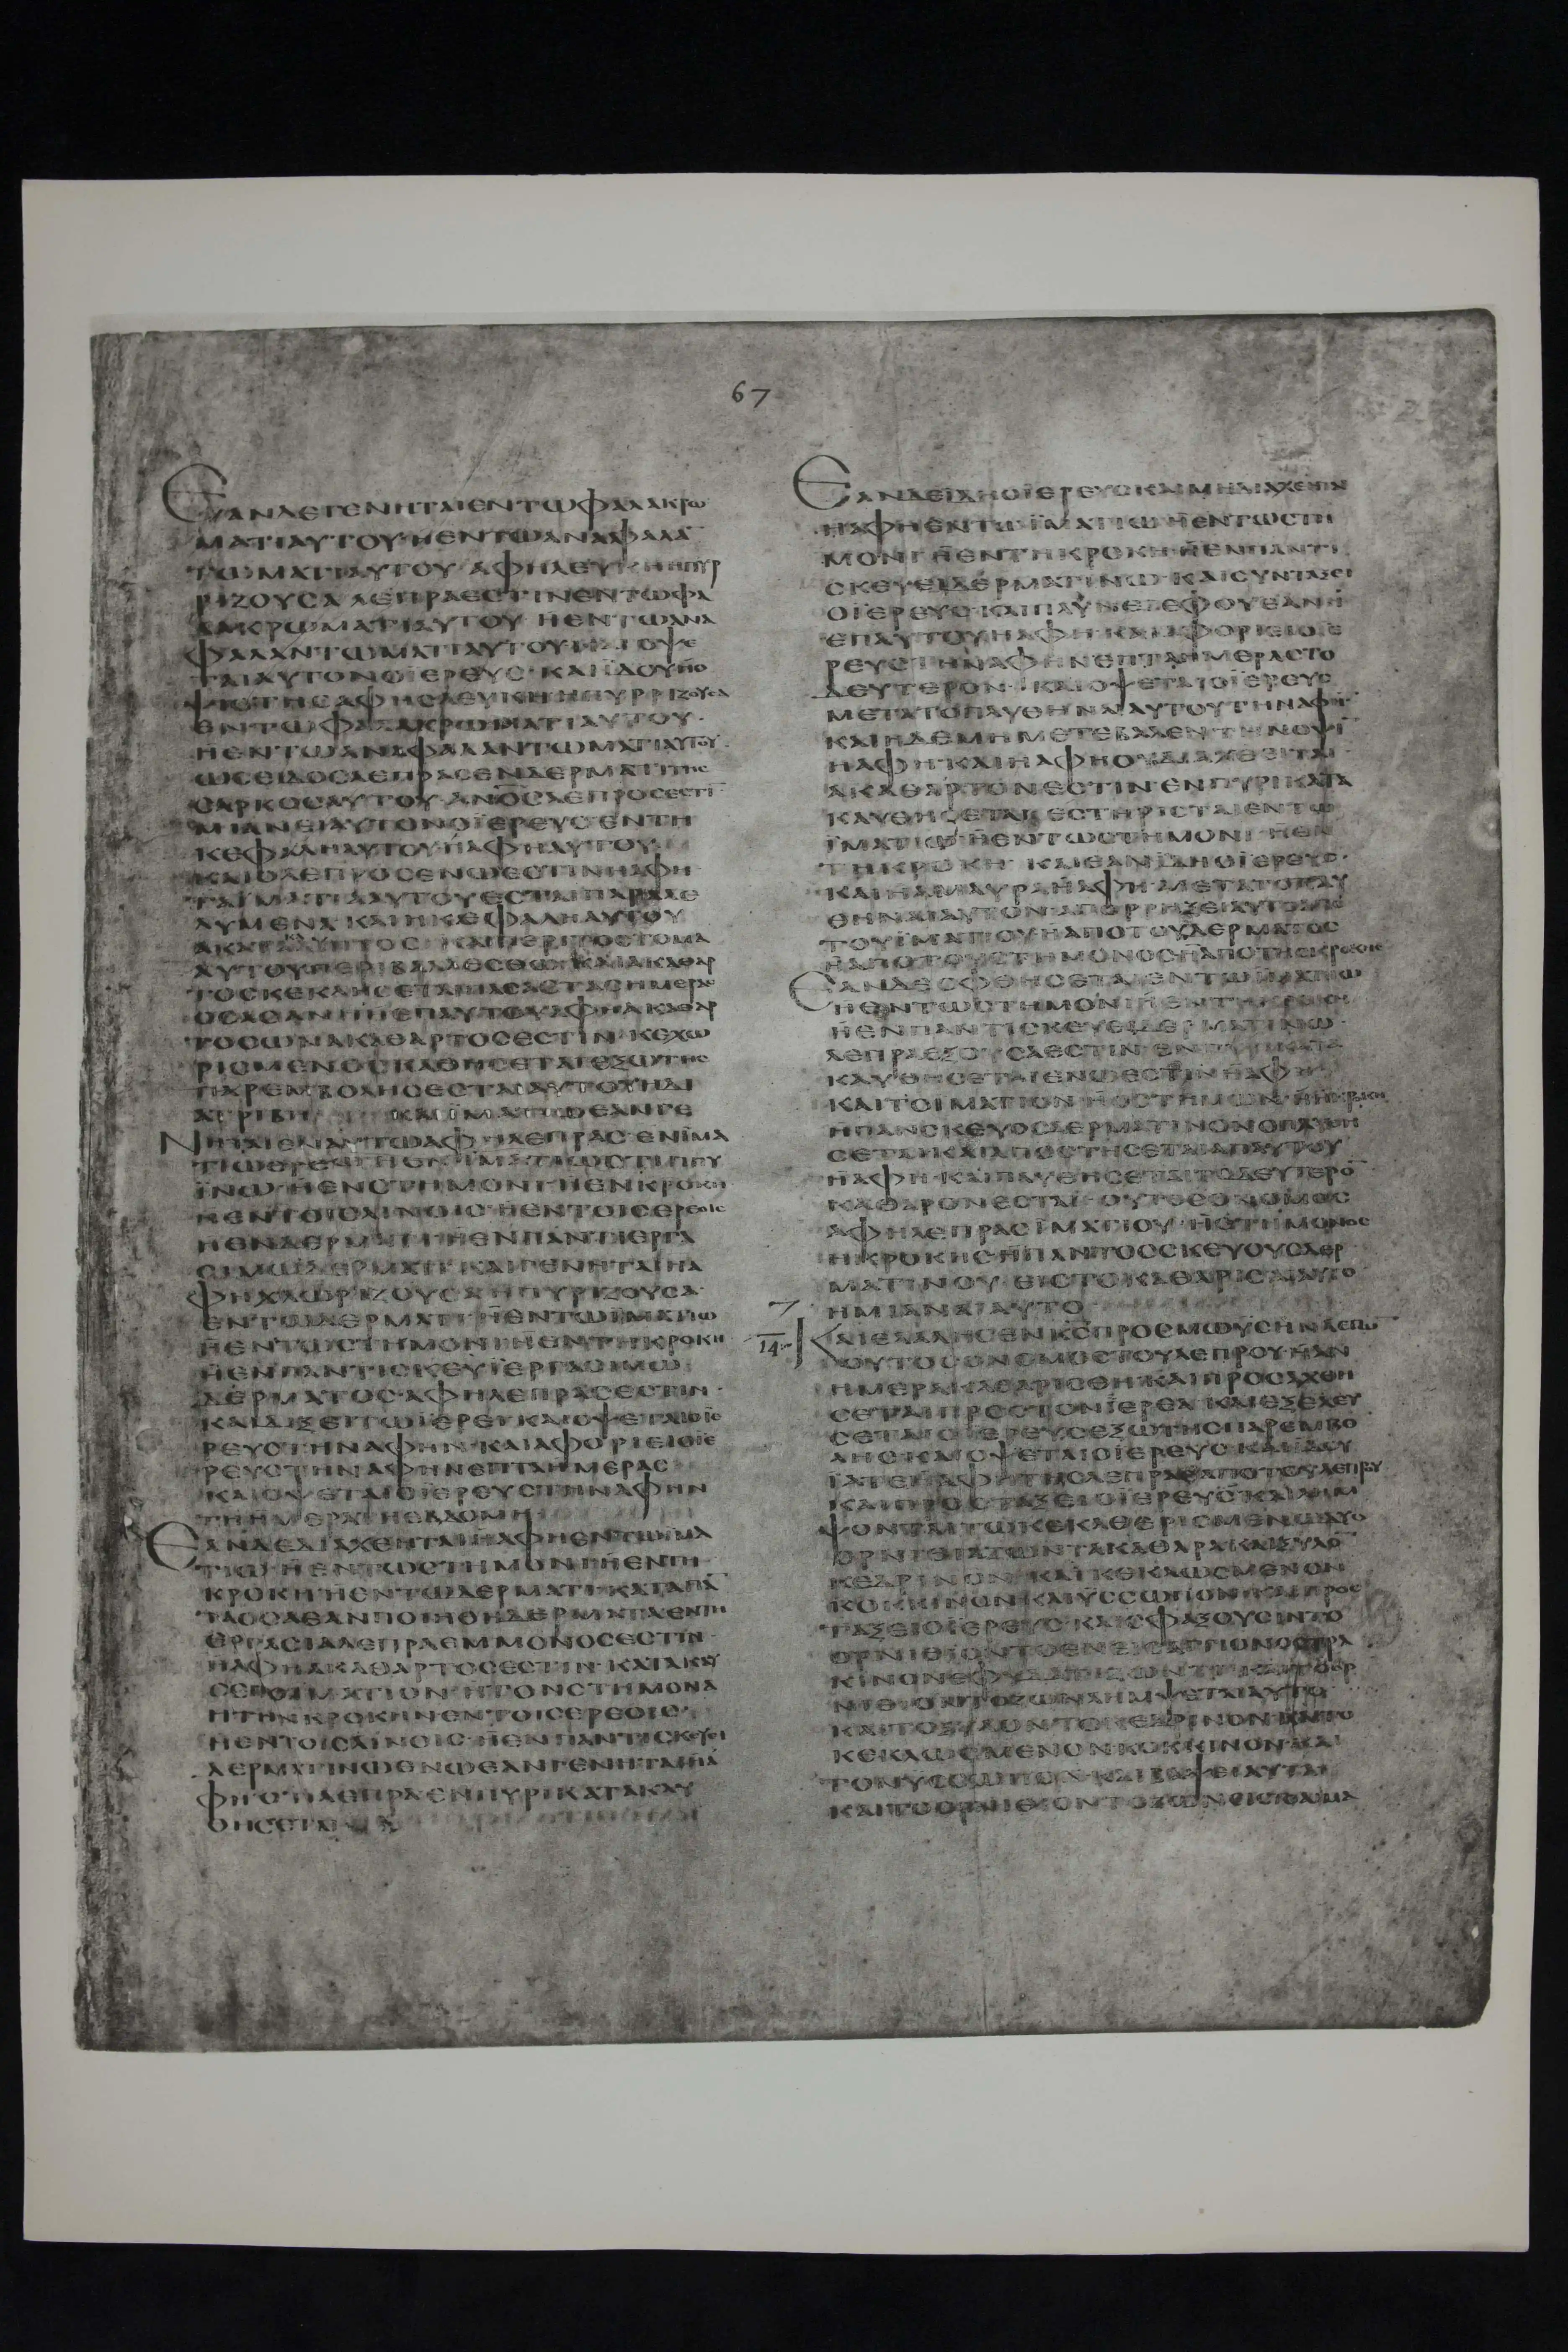 67
ΕΑΝΔΕΓΕΝΗΤΑΙΕΝΤΩΦΑΛΑΚΡΩ
ΜΑΤΙΑΥΤΟΥΗΕΝΤΩΑΝΑΦΑΛΑ
ΤΩΜΑΤΙΑΥΤΟΥΑΦΗΛΕΥΚΗΗΠΥΡ
ΡΙΖΟΥΣΑΛΕΠΡΑΕΣΤΙΝΕΝΤΩΦΑ
ΛΑΚΡΩΜΑΤΙΑΥΤΟΥΗΕΝΤΩΑΝΑ
ΦΑΛΑΝΤΩΜΑΤΙΑΥΤΟΥΚΑΙΟΨΕ
ΤΑΙΑΥΤΟΝΟΪΕΡΕΥΣ·ΚΑΙΪΔΟΥΗΟ
ΨΙΣΤΗΣΑΦΗΣΛΕΥΚΗΗΠΥΡΡΙΖΟΥΣΑ
ΕΝΤΩΦΑΛΑΚΡΩΜΑΤΙΑΥΤΟΥ·
ΗΕΝΤΩΑΝΑΦΑΛΑΝΤΩΜΑΤΙΑΥΤΟΥ·
ΩΣΕΙΔΟΣΛΕΠΡΑΣΕΝΔΕΡΜΑΤΙΤΗΣ
ΣΑΡΚΟΣΑΥΤΟΥ·ΑΝΟΣΛΕΠΡΟΣΕΣΤΙ
ΜΙΑΝΕΙΑΥΤΟΝΟΪΕΡΕΥΣΕΝΤΗ
ΚΕΦΑΛΗΑΥΤΟΥΗΑΦΗΑΥΤΟΥ·
ΚΑΙΟΛΕΠΡΟΣΕΝΩΕΣΤΙΝΗΑΦΗ
ΤΑΪΜΑΤΙΑΑΥΤΟΥΕΣΤΑΙΠΑΡΑΛΕ
ΛΥΜΕΝΑΚΑΙΗΚΕΦΑΛΗΑΥΤΟΥ
ΑΚΑΤΑΛΥΠΤΟΣ·ΚΑΙΠΕΡΙΤΟΣΤΟΜΑ
ΑΥΤΟΥΠΕΡΙΒΑΛΕΣΘΩ·ΚΑΙΑΚΑΘΑΡ
ΤΟΣΚΕΚΛΗΣΕΤΑΙΠΑΣΑΣΤΑΣΗΜΕΡΑΣ
ΟΣΑΣΑΝΗΕΠΑΥΤΟΥΑΦΗΑΚΑΘΑΡ
ΤΟΣΩΝΑΚΑΘΑΡΤΟΣΕΣΤΙΝ·ΚΕΧΩ
ΡΙΣΜΕΝΟΣΚΑΘΗΣΕΤΑΙΕΞΩΤΗΣ
ΠΑΡΕΜΒΟΛΗΣΕΣΤΑΙΑΥΤΟΥΗΔΙ
ΑΤΡΙΒΗ ΚΑΙΪΜΑΤΙΩΕΑΝΓΕ
ΝΗΤΑΙΕΝΑΥΤΩΑΦΗΛΕΠΡΑΣ·ΕΝΪΜΑ
ΪΝΩ·ΗΕΝΣΤΗΜΟΝΙΗΕΝΚΡΟΚΗ
ΗΕΝΤΟΙΣΛΙΝΟΙΣ·ΗΕΝΤΟΙΣΕΡΕΟΙΣ
ΗΕΝΔΕΡΜΑΤΙΗΕΝΠΑΝΤΙΕΡΓΑ
ΣΙΜΩΔΕΡΜΑΤΙ·ΚΑΙΓΕΝΗΤΑΙΗΑ
ΦΗΧΛΩΡΙΖΟΥΣΑΗΠΥΡΙΖΟΥΣΑ
ΕΝΤΩΔΕΡΜΑΤΙ·ΗΕΝΤΩΪΜΑΤΙΩ
ΗΕΝΤΩΣΤΗΜΟΝΙΗΕΝΤΗΚΡΟΚΗ
ΗΕΝΠΑΝΤΙΣΚΕΥΪΕΡΓΑΣΙΜΩ
ΔΕΡΜΑΤΟΣ·ΑΦΗΛΕΠΡΑΣΕΣΤΙΝ·
ΚΑΙΔΙΞΕΙΤΩΪΕΡΕΙ·ΚΑΙΟΨΕΤΑΙΟΪΕ
ΡΕΥΣΤΗΝΑΦΗΝ·ΚΑΙΑΦΟΡΙΕΙΟΪΕ
ΡΕΥΣΤΗΝΑΦΗΝΕΠΤΑΗΜΕΡΑΣ
ΚΑΙΟΨΕΤΑΙΟΪΕΡΕΥΣΤΗΝΑΦΗΝ
ΤΗΗΜΕΡΑΤΗΕΒΔΟΜΗ
ΕΑΝΔΕΔΙΑΧΕΗΤΑΙΗΑΦΗΕΝΤΩΪΜΑ
ΤΙΩ·ΗΕΝΤΩΣΤΗΜΟΝΙΗΕΝΤΗ
ΚΡΟΚΗΗΕΝΤΩΔΕΡΜΑΤΙ·ΚΑΤΑΠΑ
ΤΑΟΣΑΕΑΝΠΟΙΗΘΗΔΕΡΜΑΤΑΕΝΤΗ
ΕΡΓΑΣΙΑΛΕΠΡΑΕΜΜΟΝΟΣΕΣΤΙΝ·
ΗΑΦΗΑΚΑΘΑΡΤΟΣΕΣΤΙΝ·ΚΑΤΑΚΑΥ
ΣΕΙΤΟΪΜΑΤΙΟΝΗΤΟΝΣΤΗΜΟΝΑ
ΗΤΗΝΚΡΟΚΗΝΕΝΤΟΙΣΕΡΕΟΙΣ·
ΗΕΝΤΟΙΣΛΙΝΟΙΣ·ΗΕΝΠΑΝΤΙΣΚΕΥΕΙ
ΔΕΡΜΑΤΙΝΩΕΝΩΕΑΝΓΕΝΗΤΑΙΗΑ
ΚΑΥ
ΘΗΣΕΤΑΙ
ΕΑΝΔΕΙΔΗΟΪΕΡΕΥΣΚΑΙΜΗΔΙΑΧΕΗΤΑΙ
ΗΑΦΗΕΝΤΩΪΜΑΤΙΩΗΕΝΤΩΣΤΗ
ΜΟΝΙΗΕΝΤΗΚΡΟΚΗ·ΗΕΝΠΑΝΤΙ
ΣΚΕΥΕΙΔΕΡΜΑΤΙΝΩ·ΚΑΙΣΥΝΤΑΞΕΙ
ΕΠΑΥΤΟΥΗΑΦΗ·ΚΑΙΑΦΟΡΙΕΙΟΪΕ
ΡΕΥΣΤΗΝΑΦΗΝΕΠΤΑΗΜΕΡΑΣΤΟ
ΔΕΥΤΕΡΟΝ·ΚΑΙΟΨΕΤΑΙΟΪΕΡΕΥΣ
ΜΕΤΑΤΟΠΛΥΘΗΝΑΙΑΥΤΟΥΤΗΝΑΦΗ
ΚΑΙΗΔΕΜΗΜΕΤΕΒΑΛΕΝΤΗΝΟΨΙ
ΗΑΦΗ·ΚΑΙΗΑΦΗΟΥΔΙΑΧΕΙΤΑΙ
ΑΚΑΘΑΡΤΟΝΕΣΤΙΝΕΝΠΥΡΙΚΑΤΑ
ΚΑΥΘΗΣΕΤΑΙ·ΕΣΤΗΡΙΣΤΑΙΕΝΤΩ
ΪΜΑΤΙΩΗΕΝΤΩΣΤΗΜΟΝΙ·ΗΕΝ
ΤΗΚΡΟΚΗ·ΚΑΙΕΑΝΪΔΗΟΪΕΡΕΥΣ·
ΚΑΙΗΑΜΑΥΡΑΗΑΦΗ·ΜΕΤΑΤΟΠΛΥ
ΘΗΝΑΙΑΥΤΟΝ·ΑΠΟΡΡΗΞΕΙΑΥΤΟΑΠΟ
ΤΟΥΪΜΑΤΙΟΥΗΑΠΟΤΟΥΔΕΡΜΑΤΟΣ
ΗΑΠΟΤΟΥΣΤΗΜΟΝΟΣΗΑΠΟΤΗΣΚΡΟΚΗΣ
ΕΑΝΔΕΟΦΘΗΣΕΤΑΙΕΝΤΩΪΜΑΤΙΩ
ΗΕΝΤΩΣΤΗΜΟΝΙΗΕΝΤΗΚΡΟΚΗ
ΗΕΝΠΑΝΤΙΣΚΕΥΕΙΔΕΡΜΑΤΙΝΩ·
ΚΑΥΘΗΣΕΤΑΙΕΝΩΕΣΤΙΝΗΑΦΗ
ΚΑΙΤΟΪΜΑΤΙΟΝ·ΗΟΣΤΗΜΩΝ·ΗΗΚΡΟΚΗ
ΗΠΑΝΣΚΕΥΟΣΔΕΡΜΑΤΙΝΟΝΟΠΛΥΘΗ
ΣΕΤΑΙ·ΚΑΙΑΠΟΣΤΗΣΕΤΑΙΑΠΑΥΤΟΥ
ΗΑΦΗ·ΚΑΙΠΛΥΘΗΣΕΤΑΙΤΟΔΕΥΤΕΡΟ
ΚΑΘΑΡΟΝΕΣΤΑΙ·ΟΥΤΟΣΟΝΟΜΟΣ
ΑΦΗΛΕΠΡΑΣΪΜΑΤΙΟΥ·ΗΣΤΗΜΟΝΟΣ
ΗΚΡΟΚΗΣ·ΗΠΑΝΤΟΣΣΚΕΥΟΥΣΔΕΡ
ΜΑΤΙΝΟΥ·ΕΙΣΤΟΚΑΘΑΡΙΣΑΙΑΥΤΟ
ΗΜΙΑΝΑΙΑΥΤΟ
14
ΚΑΙΕΛΑΛΗΣΕΝΚΣΠΡΟΣΜΩΥΣΗΝΛΕΓΩ
ΟΥΤΟΣΟΝΟΜΟΣΤΟΥΛΕΠΡΟΥ·ΗΑΝ
ΗΜΕΡΑΚΑΘΑΡΙΣΘΗ·ΚΑΙΠΡΟΣΑΧΘΗ
ΣΕΤΑΙΠΡΟΣΤΟΝΪΕΡΕΑ·ΚΑΙΕΞΕΛΕΥ
ΣΕΤΑΙΟΪΕΡΕΥΣΕΞΩΤΗΣΠΑΡΕΜΒΟ
ΛΗΣ·ΚΑΙΟΨΕΤΑΙΟΪΕΡΕΥΣ·ΚΑΙΪΔΟΥ
ΪΑΤΕΗΑΦΗΤΗΣΛΕΠΡΑΣΑΠΟΤΟΥΛΕΠΡΟΥ
ΚΑΙΠΡΟΣΤΑΞΕΙΟΪΕΡΕΥΣ·ΚΑΙΛΗΜ
ΨΟΝΤΑΙΤΩΚΕΚΑΘΕΡΙΣΜΕΝΩΔΥΟ
ΟΡΝΙΘΙΑΖΩΝΤΑΚΑΘΑΡΑ·ΚΑΙΞΥΛΟ
ΚΕΔΡΙΝΟΝ·ΚΑΙΚΕΚΛΩΣΜΕΝΟΝ
ΚΟΚΚΙΝΟΝ·ΚΑΙΥΣΣΩΠΟΝ·ΚΑΙΠΡΟΣ
ΤΑΞΕΙΟΪΕΡΕΥΣ·ΚΑΙΣΦΑΞΟΥΣΙΝΤΟ
ΚΑΙΤΟΞΥΛΟΝΤΟΚΕΔΡΙΝΟΝ·ΚΑΙΤΟ
ΚΕΚΛΩΣΜΕΝΟΝΚΟΚΚΙΝΟΝ·ΚΑΙ
ΚΑΙΤΟΟΡΝΙΘΙΟΝΤΟΖΩΝΕΙΣΤΟΑΙΜΑ